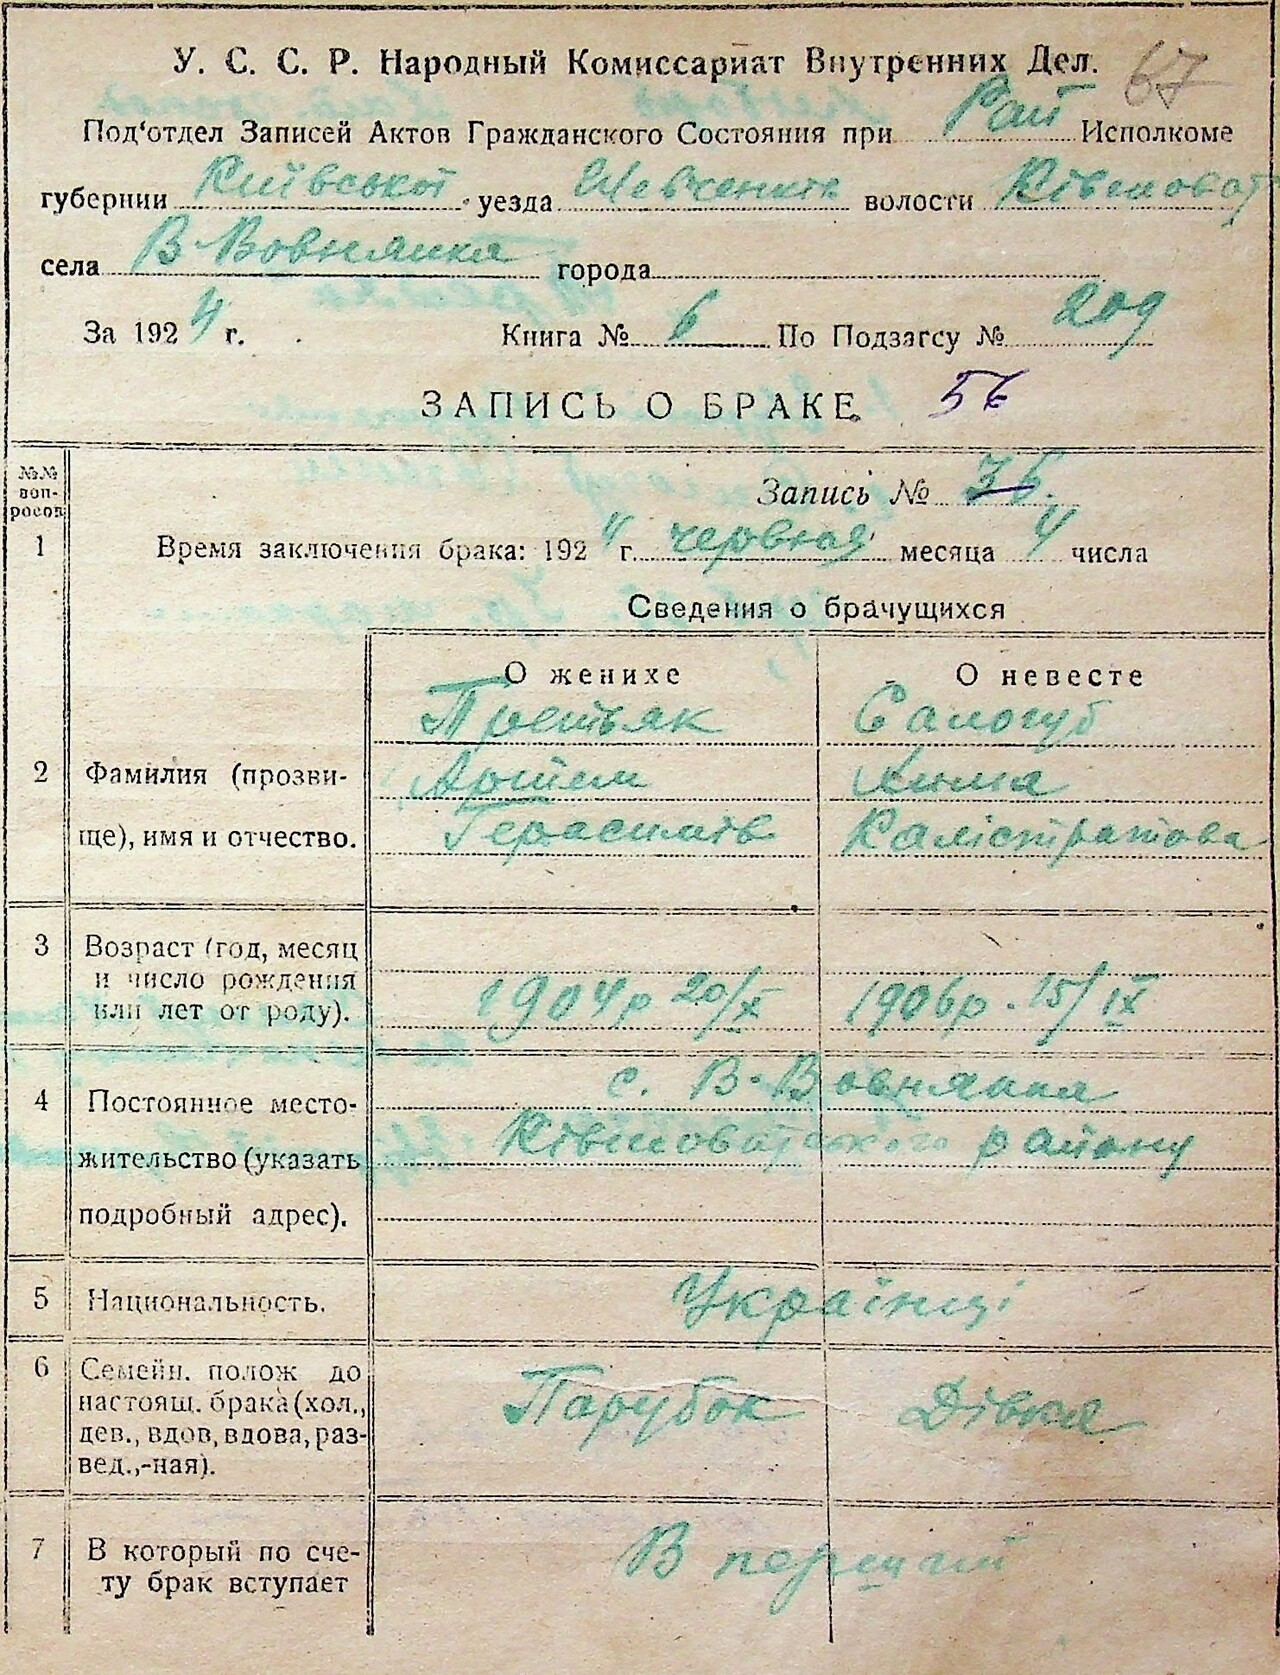 У. С. С. Р. Народный Комиссариат Внутренних Дел. 67
Под'отдел Записей Актов Гражданского Состояния при Рай Исполкоме
губернии Київської уезда Шевченків волости Ківшоват
села В-Вовнянка города
За 1924 г. Книга № 6 По Подзагсу № 209
ЗАПИСЬ О БРАКЕ 56
№№ вопросов
Запись № 36.
1 Время заключения брака: 1924 г. червная месяца 4 числа
Сведения о брачущихся
О женихе О невесте
Третьяк Салогуб
2 Фамилия (прозви- Артем Химка
ще), имя и отчество. Герасимів Калістратова
3 Возраст (год, месяц
и число рождения
или лет от роду). 1904р 20/X 1906р. 15/IX
с. В-Вовнянка
4 Постоянное место-
Ківшоватського району
жительство (указать
подробный адрес).
5 Национальность. Українці
6 Семейн. полож до
настоящ. брака (хол., Парубок Дівка
дев., вдов, вдова, раз-
вед.,-ная).
7 В который по сче- В перший
ту брак вступает